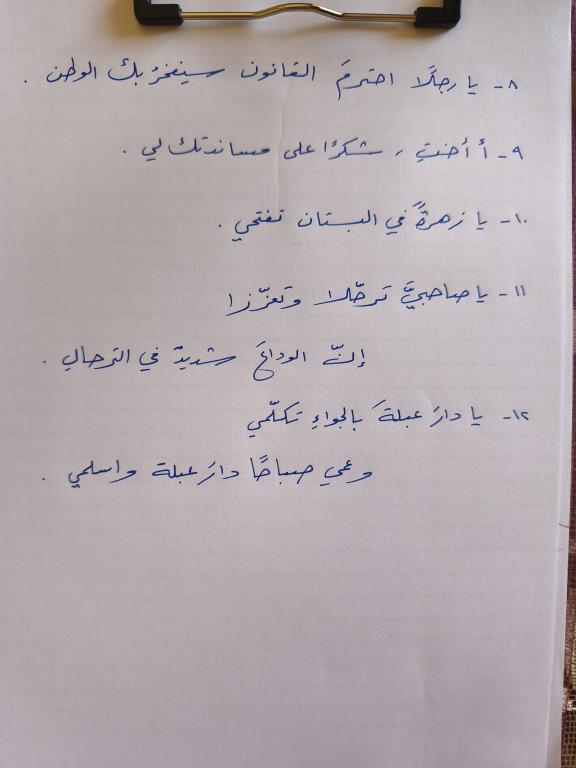 ٨- يا رجلًا احترمَ القانون سيفخرُ بك الوطن .
٩- أ أختِ ، شكرًا على مساندتك لي .
١٠- يا زهرةً في البستان تفتحي .
١١- يا صاحبيَّ ترحّلا وتعزّزا
إنّ الوداعَ شديدٌ في الترحالِ .
١٢- يا دارَ عبلةَ بالجواءِ تكلّمي
وعمي صباحًا دارَ عبلة واسلمي .